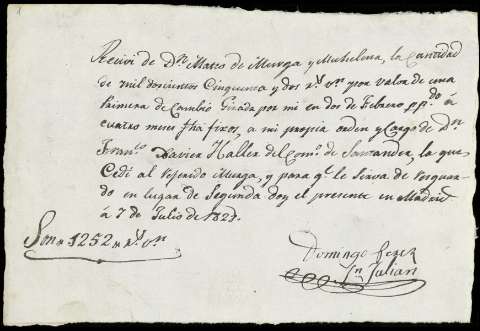 Recivi de Dn. Mateo de Murga y Michelena, la Cantidad
de mil doscientos Cinquenta y dos rs. vn. por valor de una
primera de Cambio Girada por mi en dos de Febrero pp.do á
cuatro meses fha fixos, a mi propia orden y Cargo de Dn.
Fran.co Xavier del Com.o de Santander, la que
Cedi al referido Murga, y para q.e le sirva de resguar-
do en lugar de Segunda doy el presente en Madrid
á 7 de Julio de 1827.
Son 1252 rs. vn.
Domingo Perez
Sn Julian